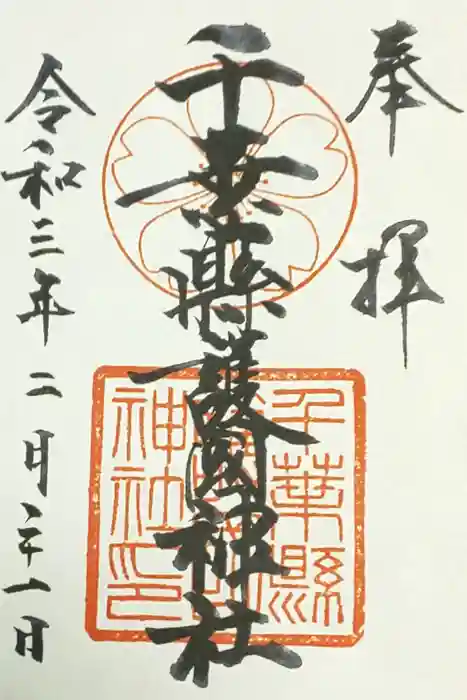 奉拝
千葉縣護國神社
千葉縣
神社印
令和三年二月二十一日